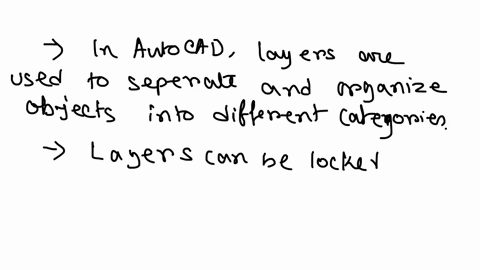 → In AutoCAD, layers are
used to seperate and organize
objects into different categories.
→ Layers can be locked